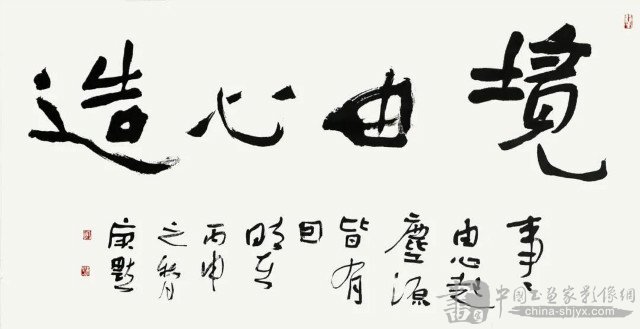 境由心造
事々
由心起
塵源
皆有
因
時在
丙申
之秋月
中国书画家影像網
china-shjyx.com